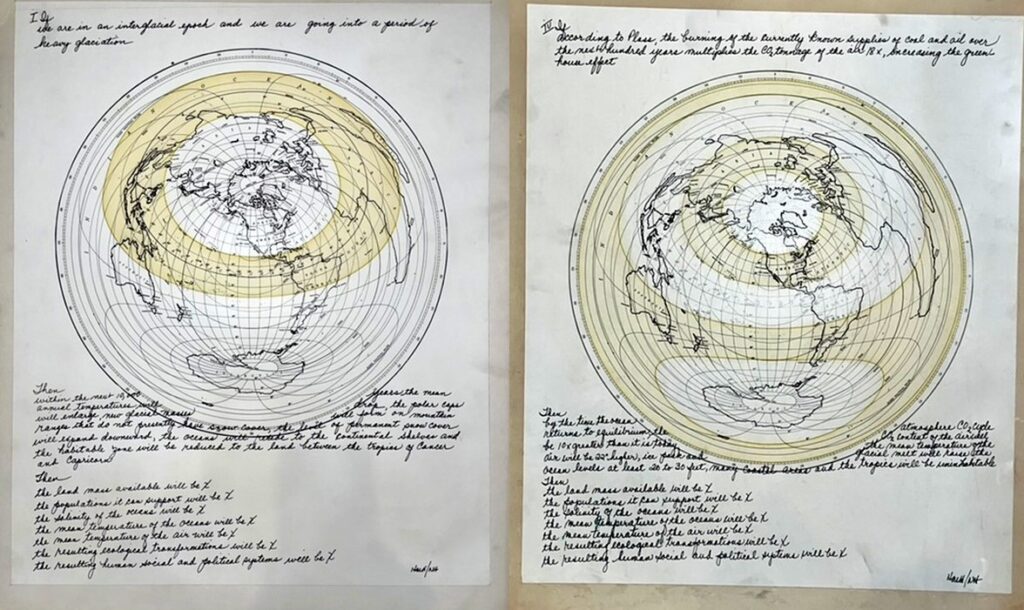 I If
we are in an interglacial epoch and we are going into a period of
heavy glaciation
Then
within the next 10,000 years the mean
annual temperatures will drop the polar caps
will enlarge new glacial masses will form on mountain
ranges that do not presently have snow cover, the level of permanent snow cover
will expand downward, the oceans will recede to the continental shelves and
the habitable zone will be reduced to the land between the tropics of Cancer
and Capricorn
Then
the land mass available will be X
the populations it can support will be X
the salinity of the oceans will be X
the mean temperature of the oceans will be X
the mean temperature of the air will be X
the resulting ecological transformations will be X
the resulting human social and political systems will be X
IV If
according to Plass, the burning of the currently known supplies of coal and oil over
the next hundred years multiplies the CO2 tonnage of the air 18x, increasing the green
house effect
Then
by the time the ocean atmosphere CO2 cycle
returns to equilibrium, the CO2 content of the air will
be 10x greater than it is today the mean temperature of the
air will be 22° higher, ice pack and glacial melt will raise the
ocean levels at least 20 to 30 feet, many coastal areas and the tropics will be uninhabitable
Then
the land mass available will be X
the populations it can support will be X
the salinity of the oceans will be X
the mean temperature of the oceans will be X
the mean temperature of the air will be X
the resulting ecological transformations will be X
the resulting human social and political systems will be X